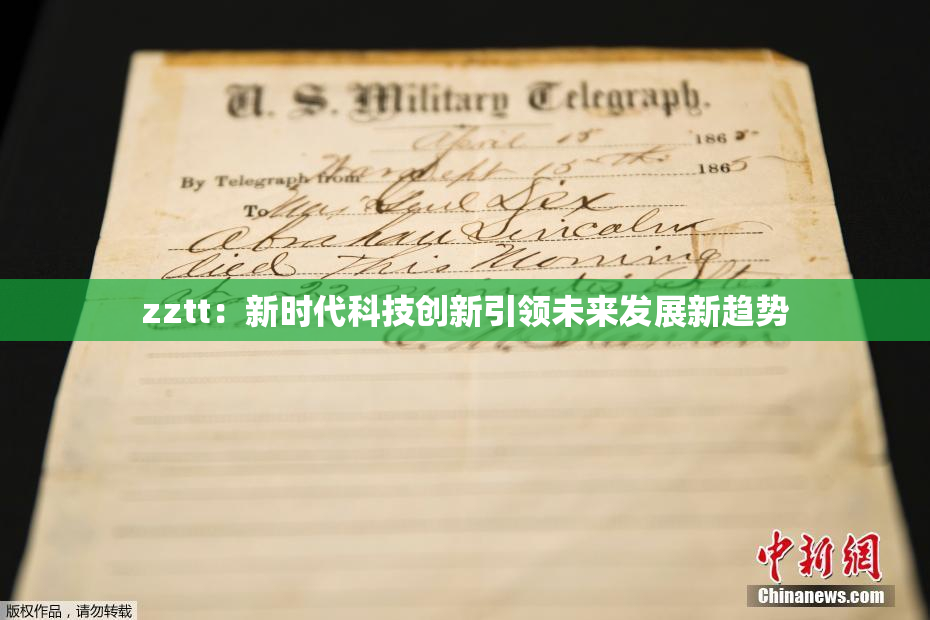 U. S. Military Telegraph.
April 15 1865
By Telegraph from War Dept 15th 1865
To Maj Genl Dix
Abraham Lincoln
died This Morning
at 22 minutes after
zztt：新时代科技创新引领未来发展新趋势
中新网
Chinanews.com
版权作品，请勿转载